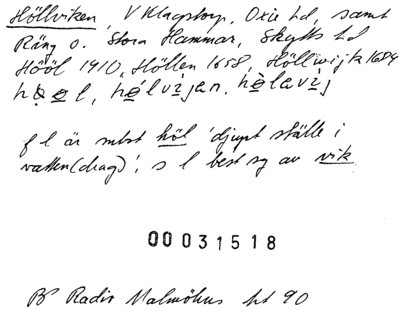 Höllviken, V Klagstorp, Oxie hd, samt
Räng o. Stora Hammar, Skytts hd
Hööl 1910, Höllen 1658, Höllwijk 1684
f l är subst höl 'djupt ställe i
vatten(drag)', s l best sg av vik
00031518
Br Radio Malmöhus ht 90